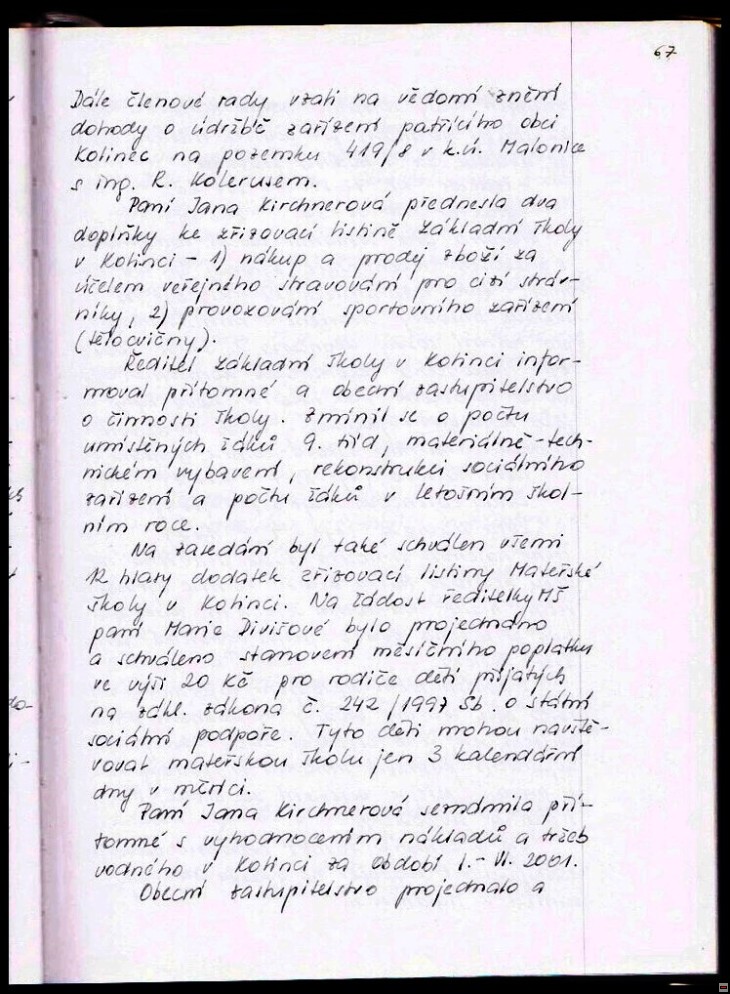 67
Dále členové rady vzali na vědomí znění
dohody o údržbě zařízení patřícího obci
Kolinec na pozemku 419/8 v k.ú. Malonice
s ing. R. Kolerusem.
Paní Jana Kirchnerová přednesla dva
doplňky ke zřizovací listině Základní školy
v Kolinci – 1) nákup a prodej zboží za
účelem veřejného stravování pro cizí stráv-
níky, 2) provozování sportovního zařízení
(tělocvičny).
Ředitel Základní školy v Kolinci infor-
moval přítomné a obecní zastupitelstvo
o činnosti školy. Zmínil se o počtu
umístěných žáků 9. tříd, materiálně-tech-
nickém vybavení, rekonstrukci sociálního
zařízení a počtu žáků v letošním škol-
ním roce.
Na zasedání byl také schválen všemi
12 hlasy dodatek zřizovací listiny Mateřské
školy v Kolinci. Na žádost ředitelky MŠ
paní Marie Divišové bylo projednáno
a schváleno stanovení měsíčního poplatku
ve výši 20 Kč pro rodiče dětí přijatých
na zákl. zákona č. 242/1997 Sb. o státní
sociální podpoře. Tyto děti mohou navště-
vovat mateřskou školu jen 3 kalendářní
dny v měsíci.
Paní Jana Kirchnerová seznámila pří-
tomné s vyhodnocením nákladů a tržeb
vodného v Kolinci za období I.- VI. 2001.
Obecní zastupitelstvo projednalo a